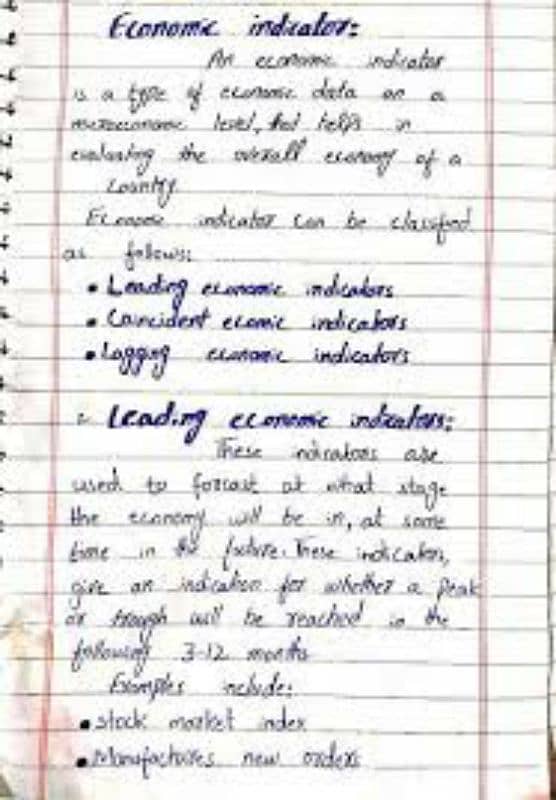 Economic indicator:
An economic indicator
is a type of economic data on a
microeconomic level, that helps in
evaluating the overall economy of a
country
Economic indicator can be classified
as follows:
• Leading economic indicators
• Coincident ecomic indicators
• Lagging economic indicators
Leading economic indicators:
These indicators are
used to forcast at what stage
the economy will be in, at some
time in the future. These indicators,
give an indication for whether a peak
or trough will be reached in the
following 3-12 months
Examples include:
• stock market index
• Manufactures new orders